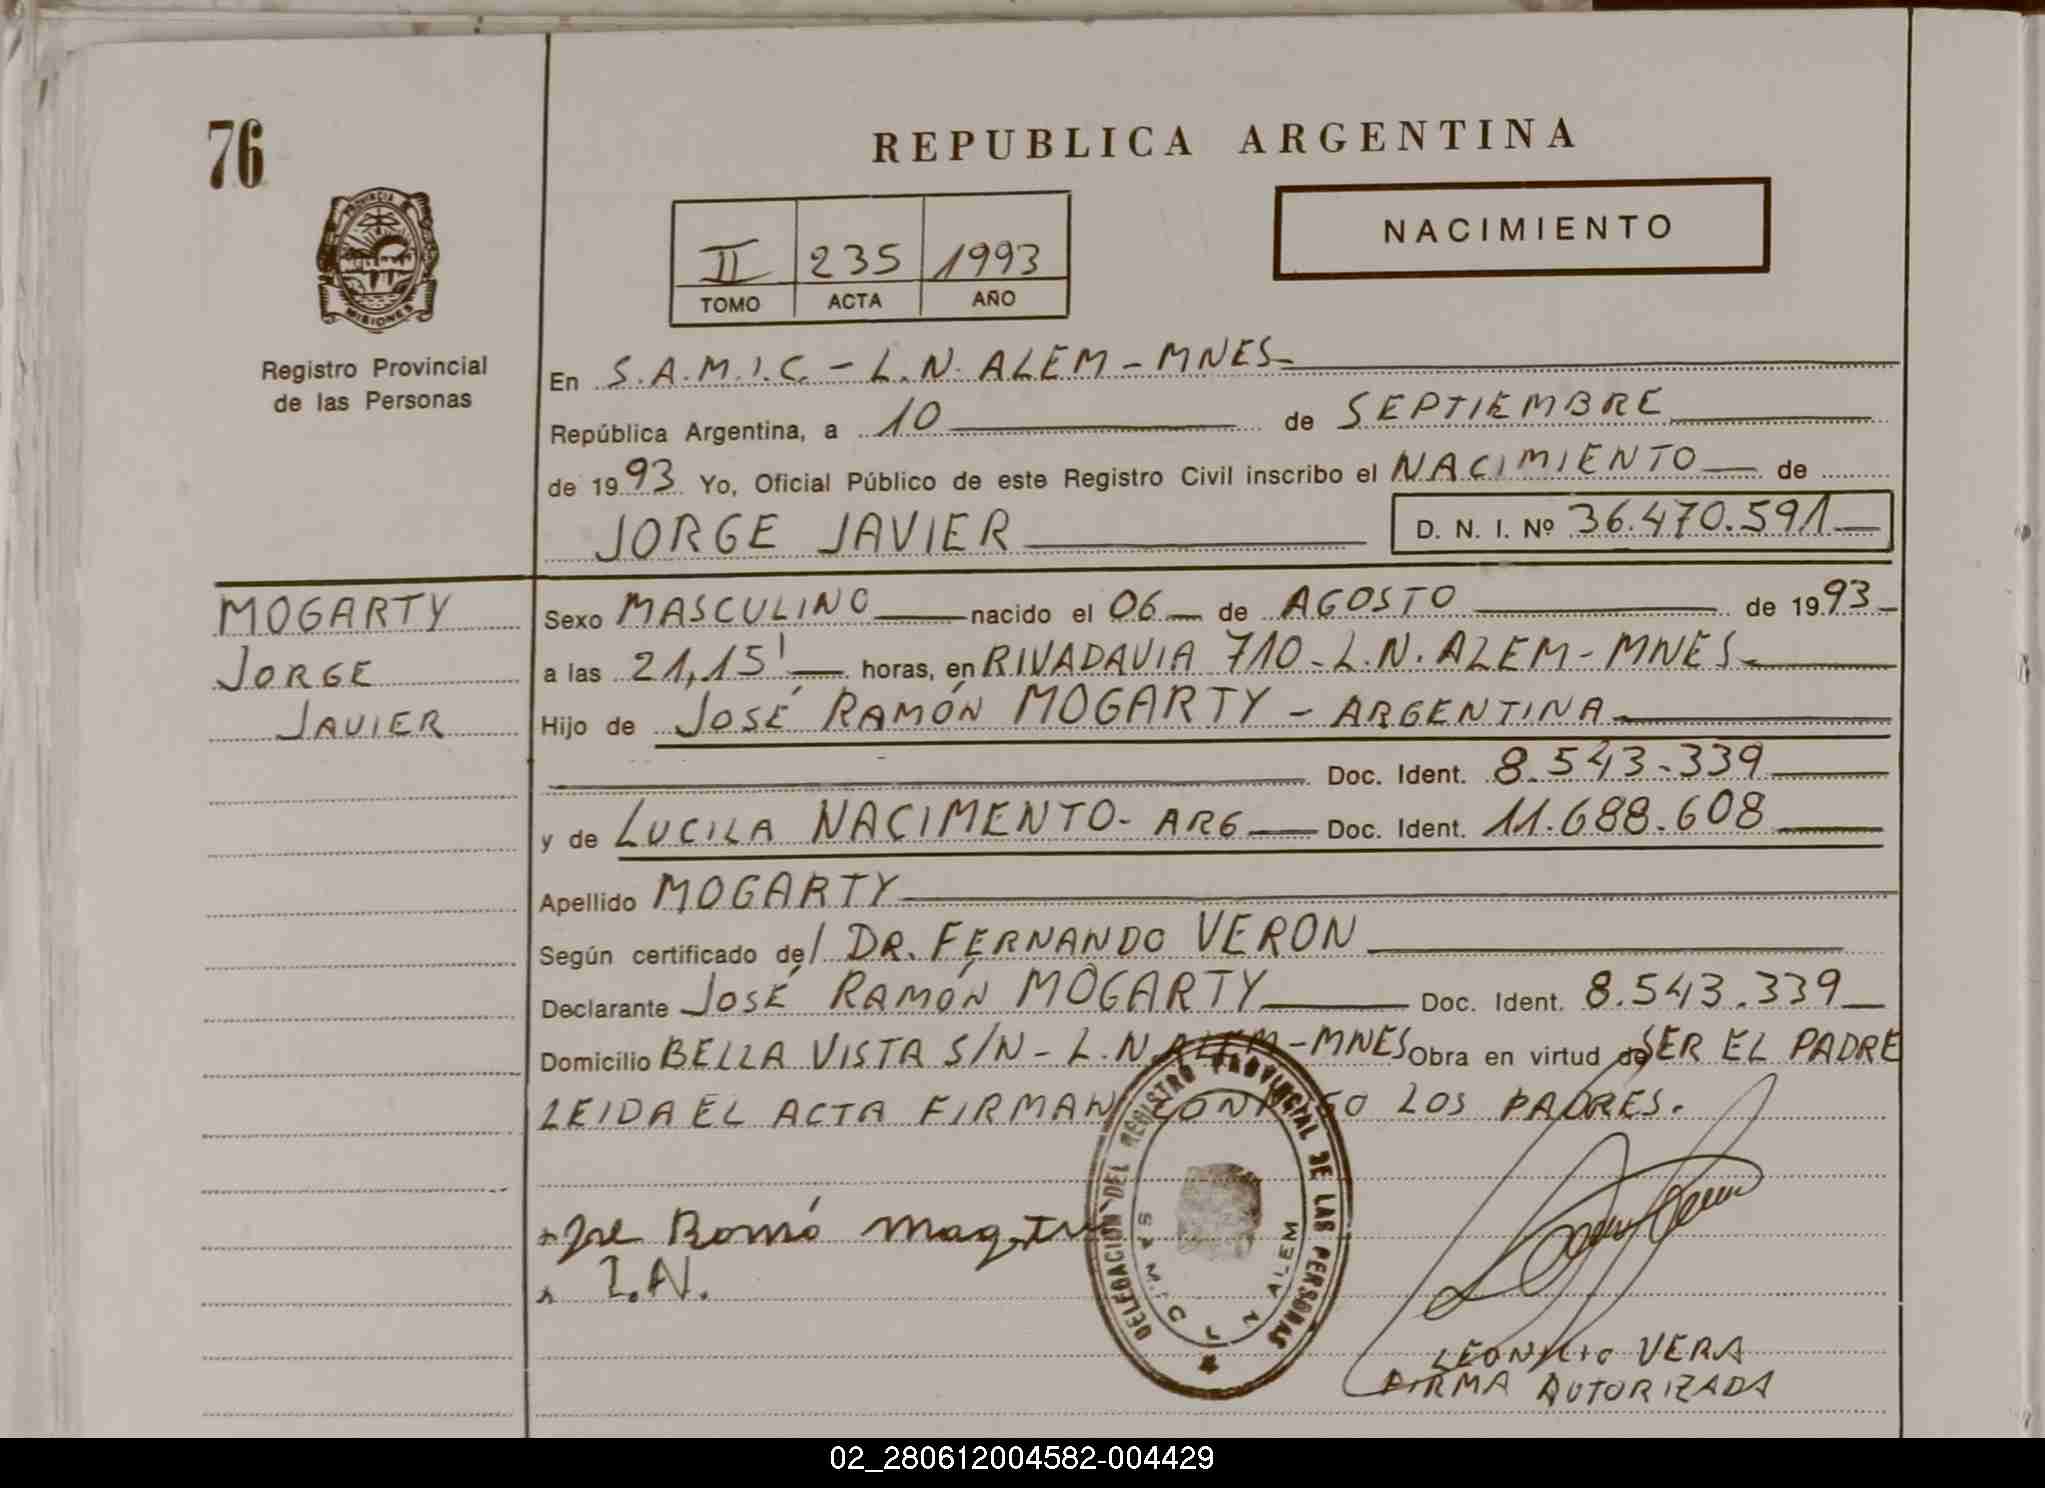 76
REPUBLICA ARGENTINA
NACIMIENTO
II 235 1993
TOMO ACTA AÑO
PROVINCIA DE
MISIONES
Registro Provincial
de las Personas
En S.A.M.I.C. - L.N. ALEM - MNES
República Argentina, a 10 de SEPTIEMBRE
de 1993 Yo, Oficial Público de este Registro Civil inscribo el NACIMIENTO de
JORGE JAVIER D. N. I. Nº 36.470.591
MOGARTY
JORGE
JAVIER
Sexo MASCULINO nacido el 06 de AGOSTO de 1993
a las 21,15' horas, en RIVADAVIA 710 - L.N. ALEM - MNES
Hijo de JOSÉ RAMÓN MOGARTY - ARGENTINA
Doc. Ident. 8.543.339
y de LUCILA NACIMENTO - ARG Doc. Ident. 11.688.608
Apellido MOGARTY
Según certificado del DR. FERNANDO VERON
Declarante JOSÉ RAMÓN MOGARTY Doc. Ident. 8.543.339
Domicilio BELLA VISTA S/N - L.N. ALEM - MNES Obra en virtud de SER EL PADRE
LEIDA EL ACTA FIRMAN CONMIGO LOS PADRES.
DELEGACION DEL REGISTRO PROVINCIAL DE LAS PERSONAS
S A M I C L N ALEM
L.N.
VERA
FIRMA AUTORIZADA
02_280612004582-004429